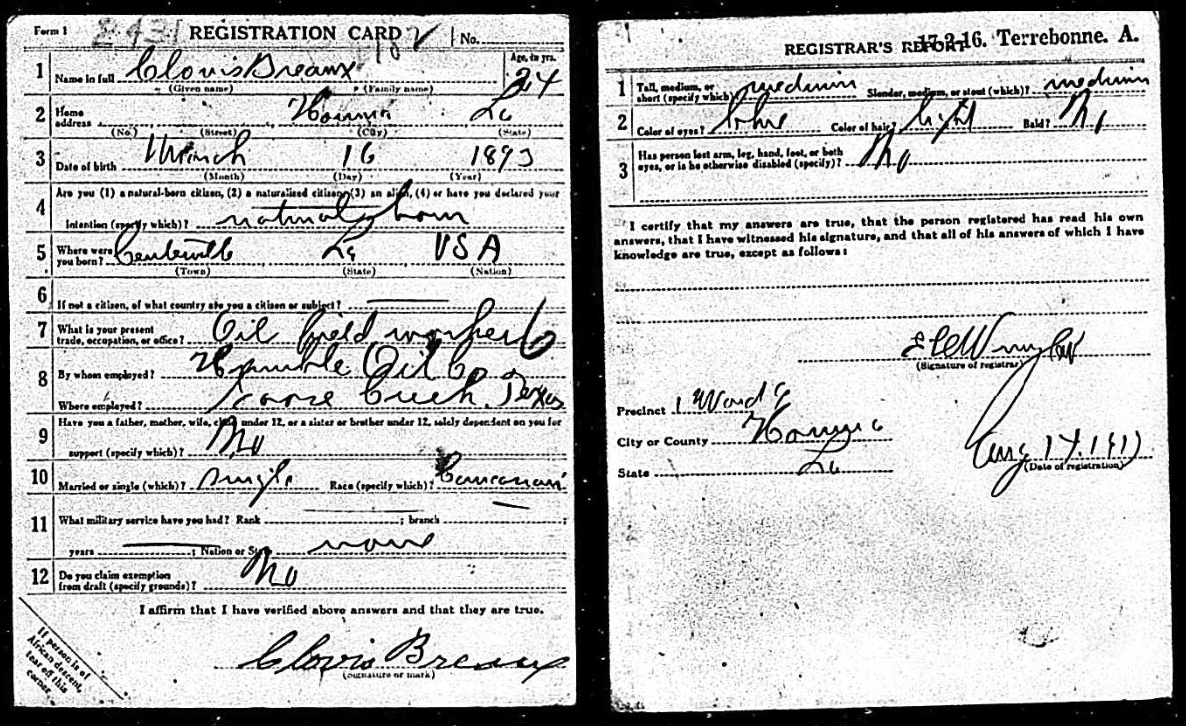 Form 1 REGISTRATION CARD No.
1 Name in full Clovis Breaux Age, in yrs. 24
(Given name) (Family name)
2 Home address Houma La
(No.) (Street) (City) (State)
3 Date of birth March 16 1893
(Month) (Day) (Year)
4 Are you (1) a natural-born citizen, (2) a naturalized citizen, (3) an alien, (4) or have you declared your
intention (specify which)? natural born
5 Where were you born? Centerville La USA
(Town) (State) (Nation)
6 If not a citizen, of what country are you a citizen or subject?
7 What is your present trade, occupation, or office? Oil field worker 6
8 By whom employed? Humble Oil Co
Where employed? Goose Creek, Texas
9 Have you a father, mother, wife, child under 12, or a sister or brother under 12, solely dependent on you for
support (specify which)? No
10 Married or single (which)? single Race (specify which)? Caucasian
11 What military service have you had? Rank ; branch ;
years ; Nation or State none
12 Do you claim exemption from draft (specify grounds)? No
I affirm that I have verified above answers and that they are true.
Clovis Breaux
(Signature or mark)
If person is of
African descent,
tear off this
corner
17-2-16. Terrebonne. A.
REGISTRAR'S REPORT
1 Tall, medium, or short (specify which)? medium Slender, medium, or stout (which)? medium
2 Color of eyes? blue Color of hair? light Bald? No
3 Has person lost arm, leg, hand, foot, or both
eyes, or is he otherwise disabled (specify)? No
I certify that my answers are true, that the person registered has read his own
answers, that I have witnessed his signature, and that all of his answers of which I have
knowledge are true, except as follows:
(Signature of registrar)
Precinct 1 Ward
City or County Houma
State La
Aug 17. 1917
(Date of registration)